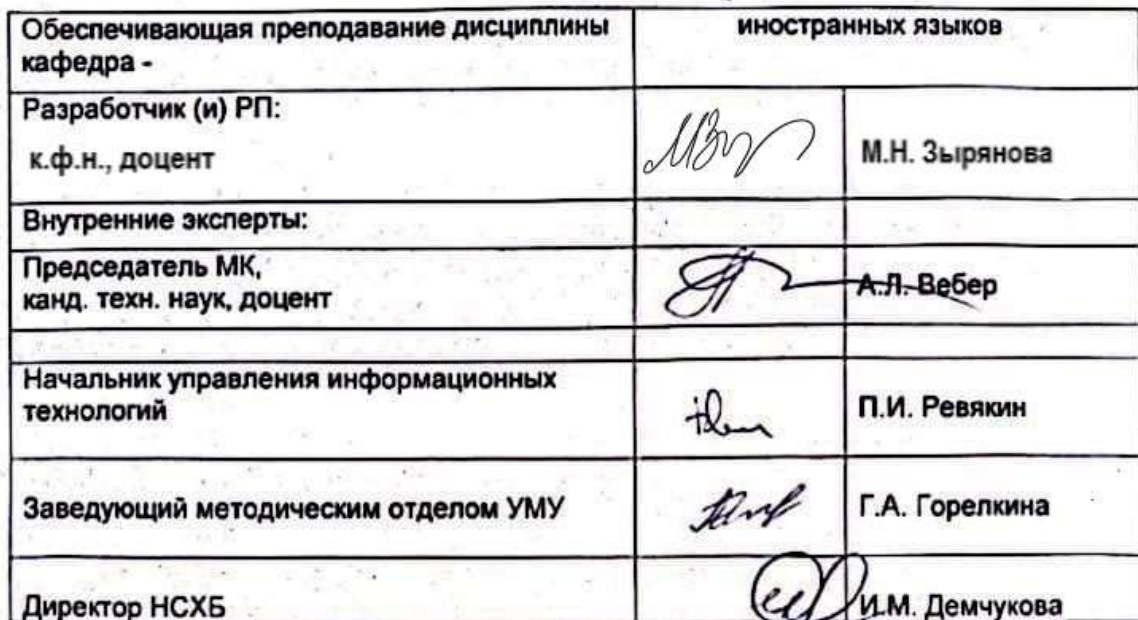 Обеспечивающая преподавание дисциплины
кафедра -
иностранных языков
Разработчик (и) РП:
к.ф.н., доцент
М.Н. Зырянова
Внутренние эксперты:
Председатель МК,
канд. техн. наук, доцент
А.Л. Вебер
Начальник управления информационных
технологий
П.И. Ревякин
Заведующий методическим отделом УМУ
Г.А. Горелкина
Директор НСХБ
И.М. Демчукова